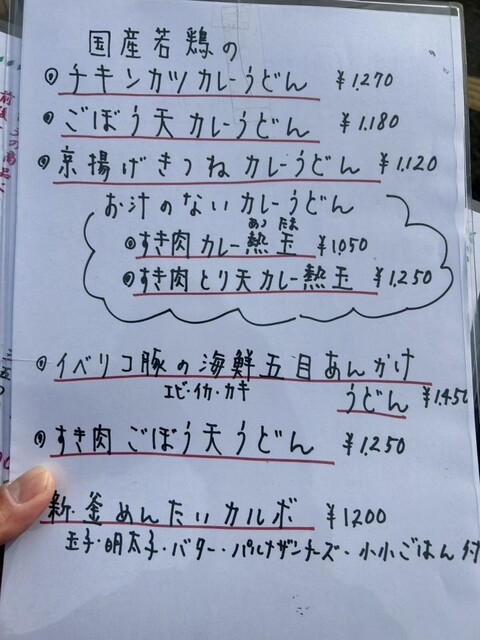 国産若鶏の
チキンカツカレーうどん ¥1.270
ごぼう天カレーうどん ¥1.180
京揚げきつねカレーうどん ¥1.120
お汁のないカレーうどん
あつ たま
すき肉カレー熱玉 ¥1,050
すき肉とり天カレー熱玉 ¥1.250
イベリコ豚の海鮮五目あんかけ
エビ・イカ・カキ
うどん ¥1.450
すき肉ごぼう天うどん ¥1.250
新・釜めんたいカルボ ¥1200
玉子・明太子・バター・パルメザンチーズ・小小ごはん付